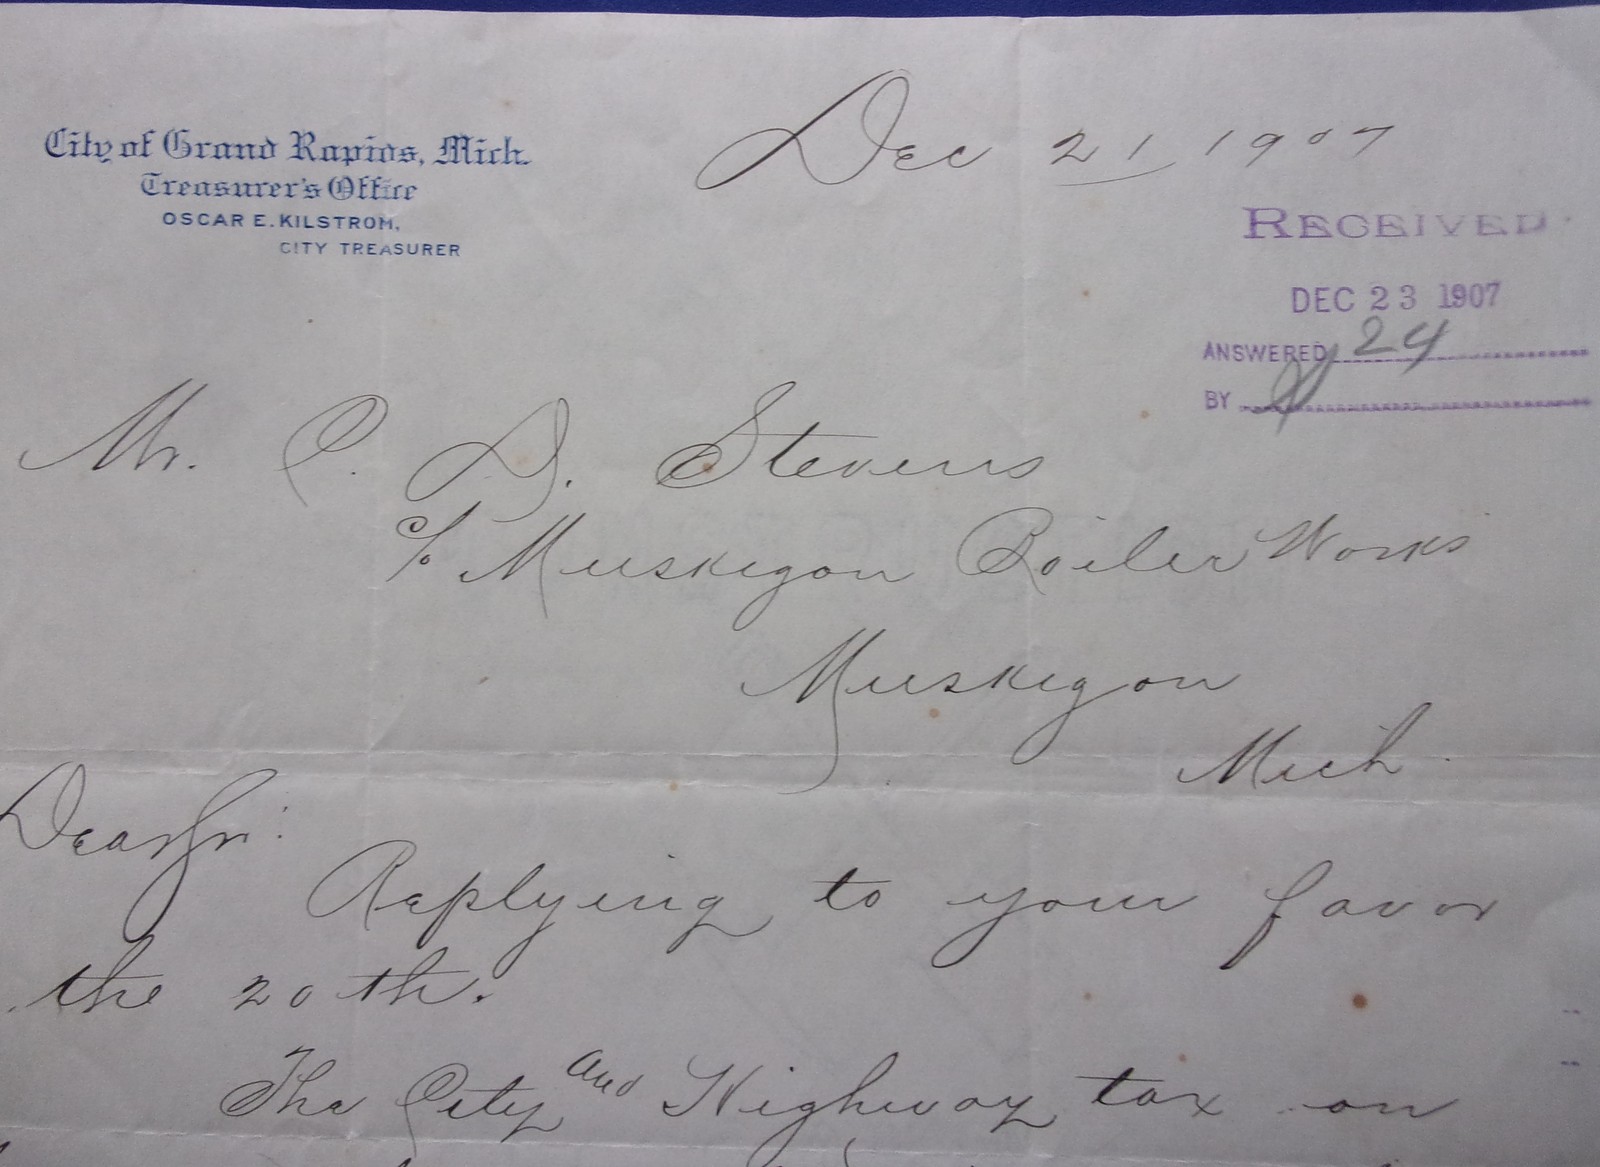 City of Grand Rapids, Mich.
Treasurer's Office
OSCAR E. KILSTROM,
CITY TREASURER
Dec 21 1907
RECEIVED
DEC 23 1907
ANSWERED 24
BY
Mr. C. D. Stevens
c/o Muskegon Boiler Works
Muskegon
Mich.
Dear Sir:
Replying to your favor
the 20th.
The City and Highway tax on